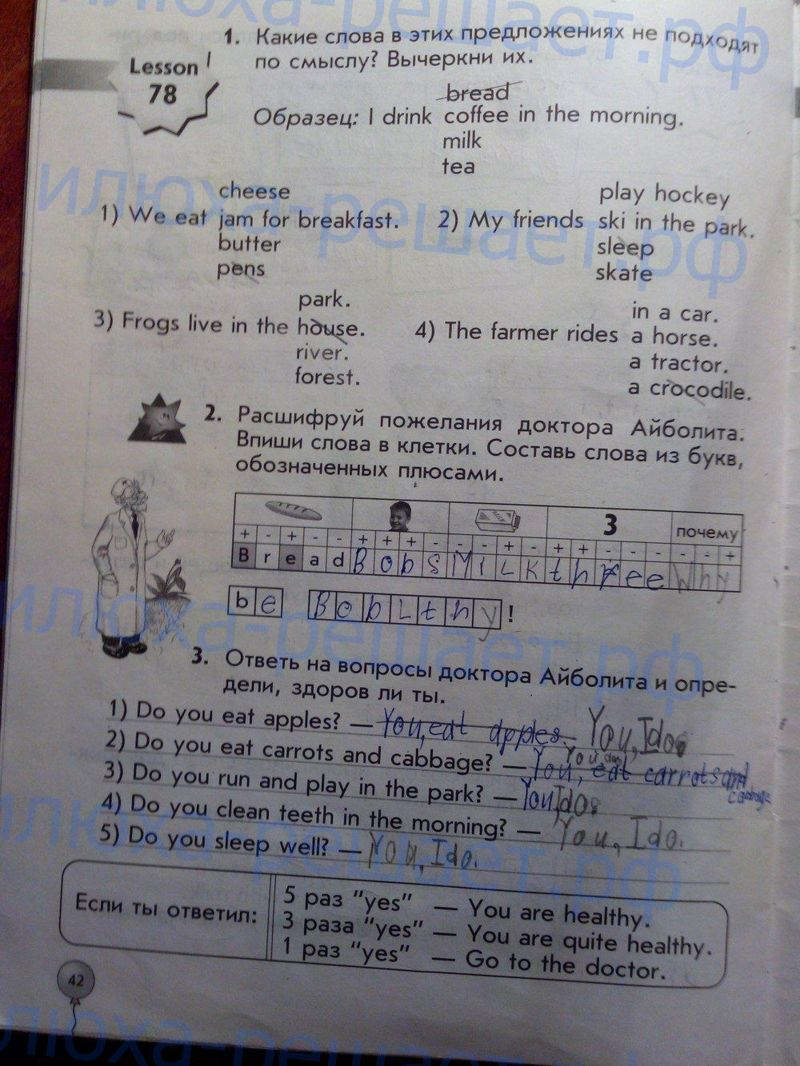 1. Какие слова в этих предложениях не подходят
Lesson
по смыслу? Вычеркни их.
78
bread
Образец: I drink coffee in the morning.
milk
tea
cheese
play hockey
1) We eat jam for breakfast.
2) My friends ski in the park.
butter
sleep
pens
skate
park.
in a car.
3) Frogs live in the house.
4) The farmer rides a horse.
river.
a tractor.
forest.
a crocodile.
2. Расшифруй пожелания доктора Айболита.
Впиши слова в клетки. Составь слова из букв,
обозначенных плюсами.
3 почему
+ - + - - + + + - - - + - + + - - - - - +
B r e a d B o b s M i L k t h r e e W h y
b e B o b L t h y !
3. Ответь на вопросы доктора Айболита и опре-
дели, здоров ли ты.
1) Do you eat apples? — You, eat apples. You, I do.
2) Do you eat carrots and cabbage? — You, eat carrots and cabbage
3) Do you run and play in the park? — You I do.
4) Do you clean teeth in the morning? — You, I do.
5) Do you sleep well? — You, I do.
5 раз "yes" — You are healthy.
Если ты ответил: 3 раза "yes" — You are quite healthy.
1 раз "yes" — Go to the doctor.
42
илюха-решает.рф
илюха-решает.рф
илюха-решает.рф
илюха-решает.рф
илюха-решает.рф